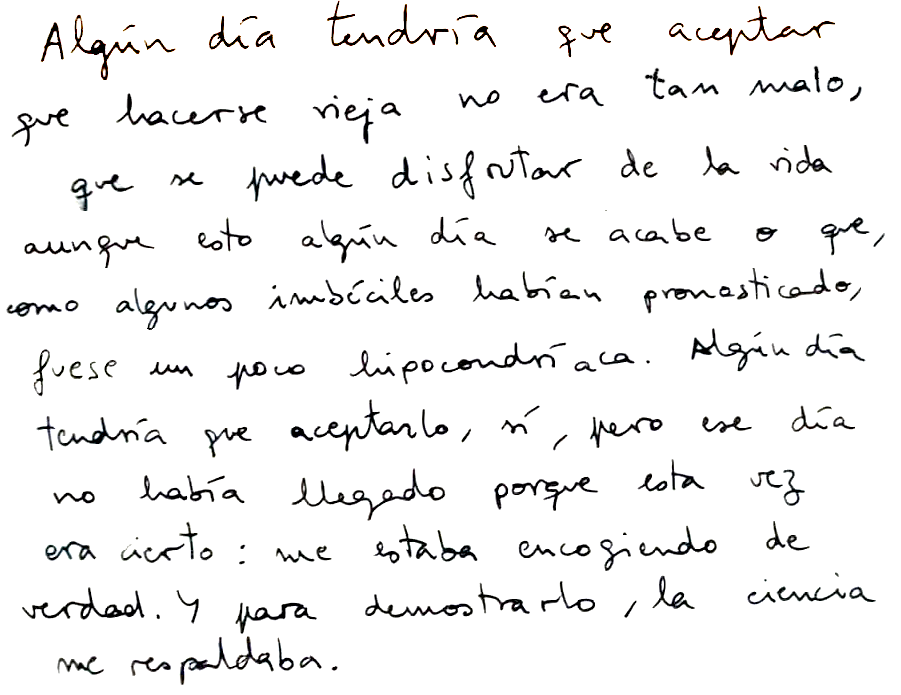 Algún día tendría que aceptar
que hacerse vieja no era tan malo,
que se puede disfrutar de la vida
aunque esto algún día se acabe o que,
como algunos imbéciles habían pronosticado,
fuese un poco hipocondríaca. Algún día
tendría que aceptarlo, sí, pero ese día
no había llegado porque esta vez
era cierto: me estaba encogiendo de
verdad. Y para demostrarlo, la ciencia
me respaldaba.